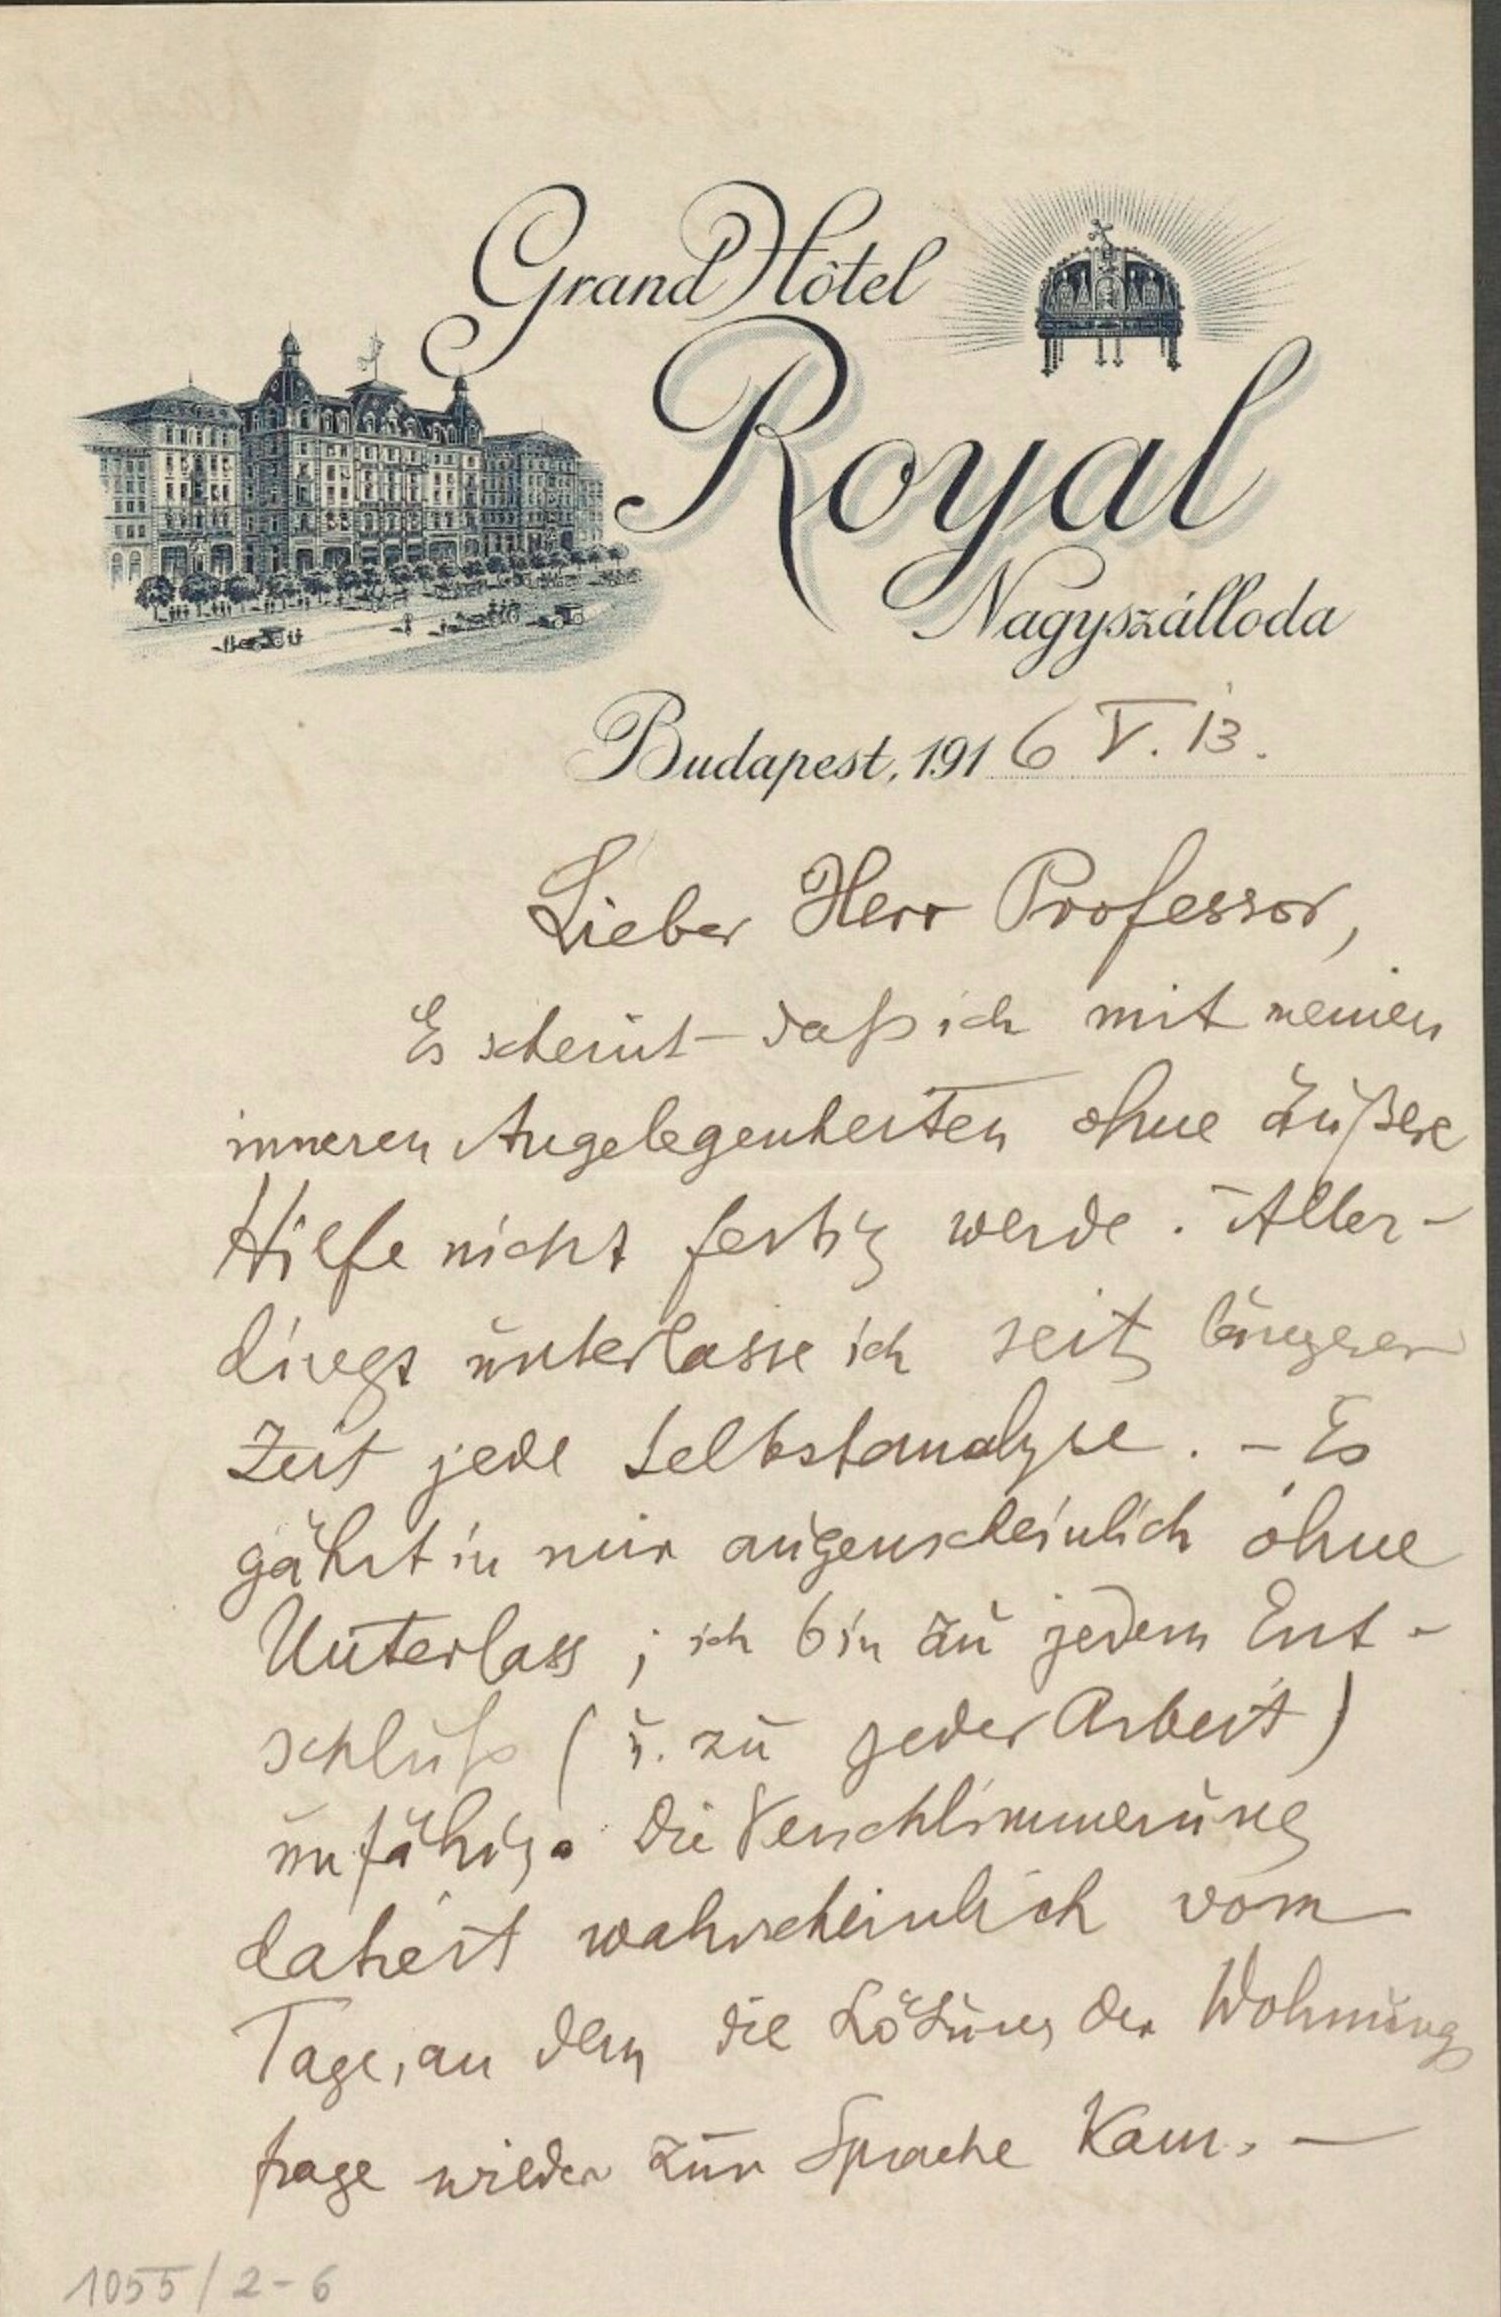 Grand Hôtel
Royal
Nagyszálloda
Budapest, 1916 V. 13.
Lieber Herr Professor,
Es scheint – daß ich mit meinen
inneren Angelegenheiten ohne äußere
Hilfe nicht fertig werde. Aller-
dings unterlasse ich seit längerer
Zeit jede Selbstanalyse. – Es
gährt in mir augenscheinlich ohne
Unterlass; ich bin zu jedem Ent-
schluß (u. zu jeder Arbeit)
unfähig. Die Verschlimmerung
datiert wahrscheinlich vom
Tage, an dem die Lösung der Wohnung
frage wieder zur Sprache kam. –
1055/2-6